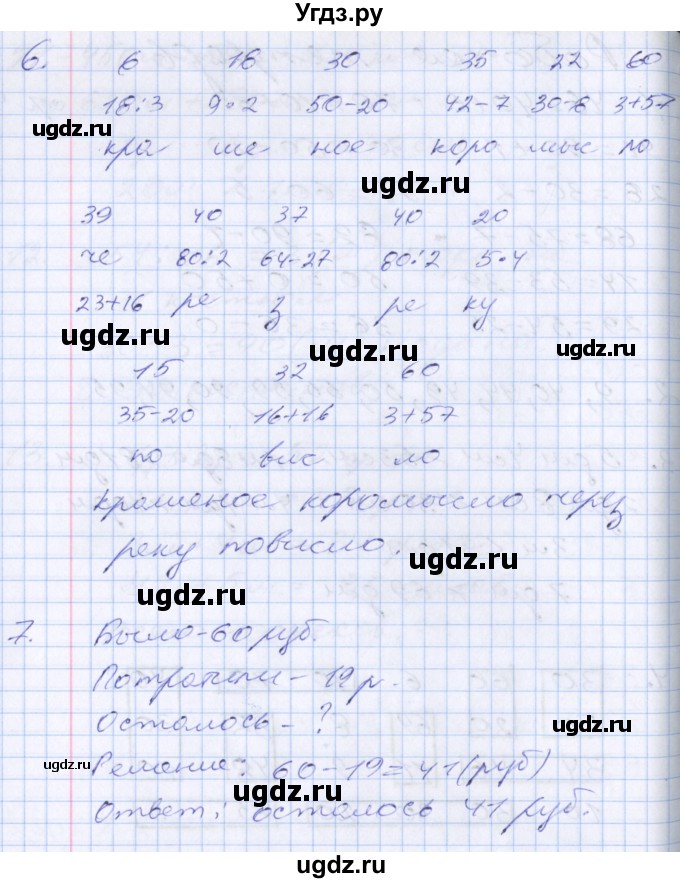 Угдз.ру
6. 6 18 30 35 22 60
ugdz.ru
18:3 9·2 50-20 42-7 30-8 3+57
кра ше ное коро мыс ло
ugdz.ru
39 40 37 40 20
че 80:2 64-27 80:2 5·4
23+16 ре з ре ку
ugdz.ru ugdz.ru ugdz.ru
15 32 60
35-20 16+16 3+57
по вис ло
Крашеное коромысло через
реку повисло.
ugdz.ru
ugdz.ru
7. Было-60 руб.
ugdz.ru
Потратили - 19 р.
Осталось - ?
ugdz.ru
ugdz.ru
Решение: 60-19=41(руб)
ugdz.ru
Ответ: осталось 41 руб.
ugdz.ru